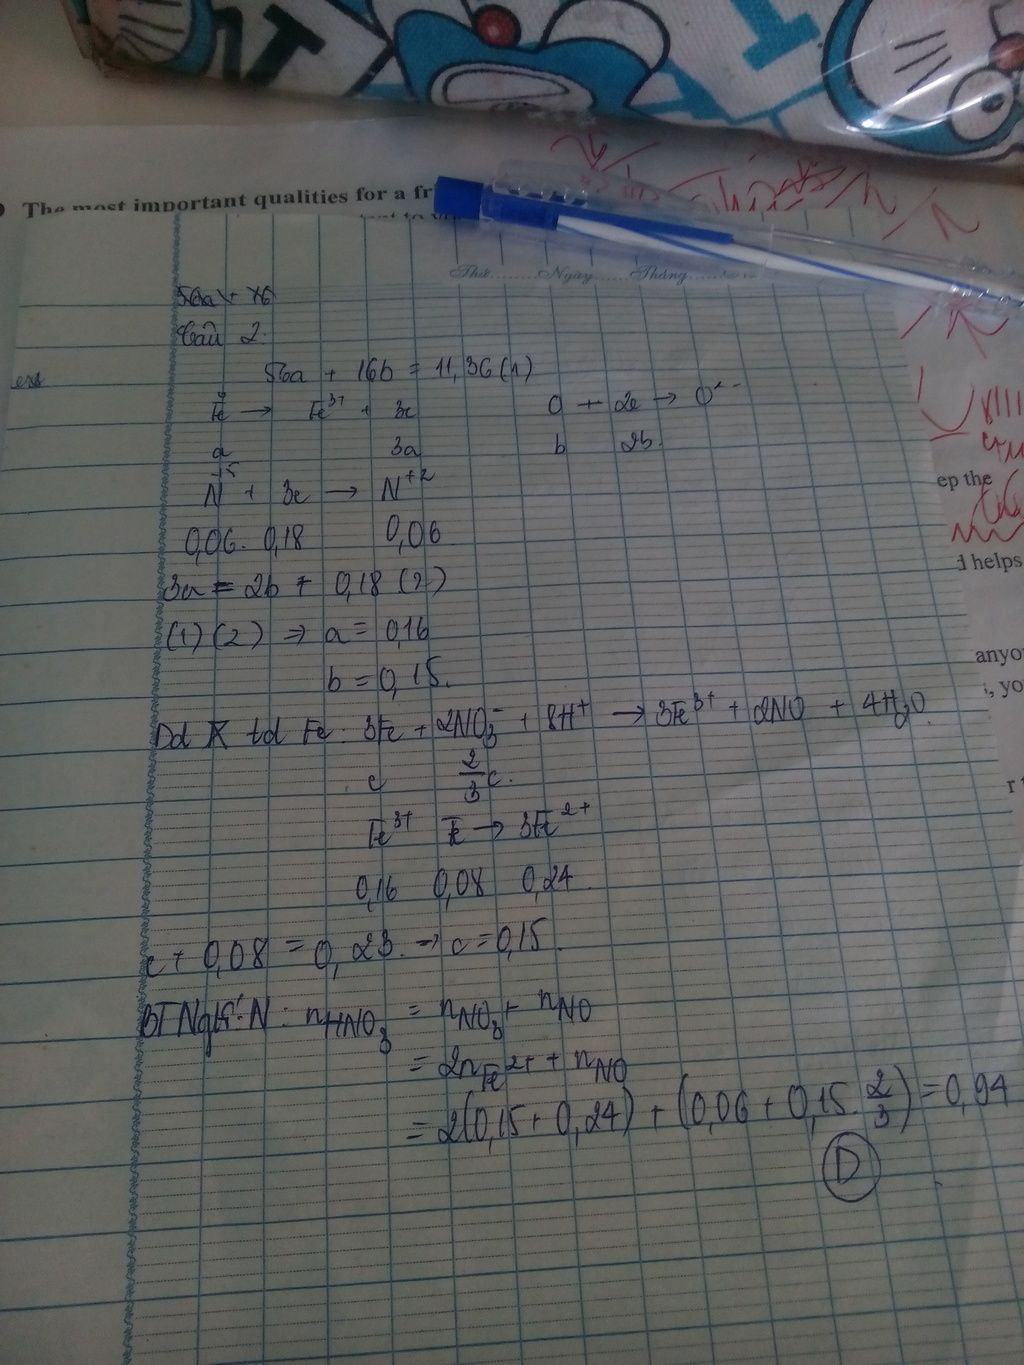 The most important qualities for a fr
Thứ........Ngày......Tháng......
56a + 16
Câu 2.
56a + 16b = 11,36 (1)
Fe → Fe3+ + 3e O + 2e → O2-
a 3a b 2b.
N+5 + 3e → N+2
0,06. 0,18 0,06
ep the
3a = 2b + 0,18 (2)
d helps
(1) (2) ⇒ a = 0,16
b = 0,15.
anyo
, yo
Dd X td Fe: 3Fe + 2NO3- + 8H+ → 3Fe3+ + 2NO + 4H2O
c 2/3 c.
Fe3+ Fe → 3Fe2+
0,16 0,08 0,24
c + 0,08 = 0,23. → c = 0,15.
BTNgtố N: nHNO3 = nNO3- + nNO
= 2nFe2+ + nNO
= 2(0,15 + 0,24) + (0,06 + 0,15. 2/3) = 0,94
D